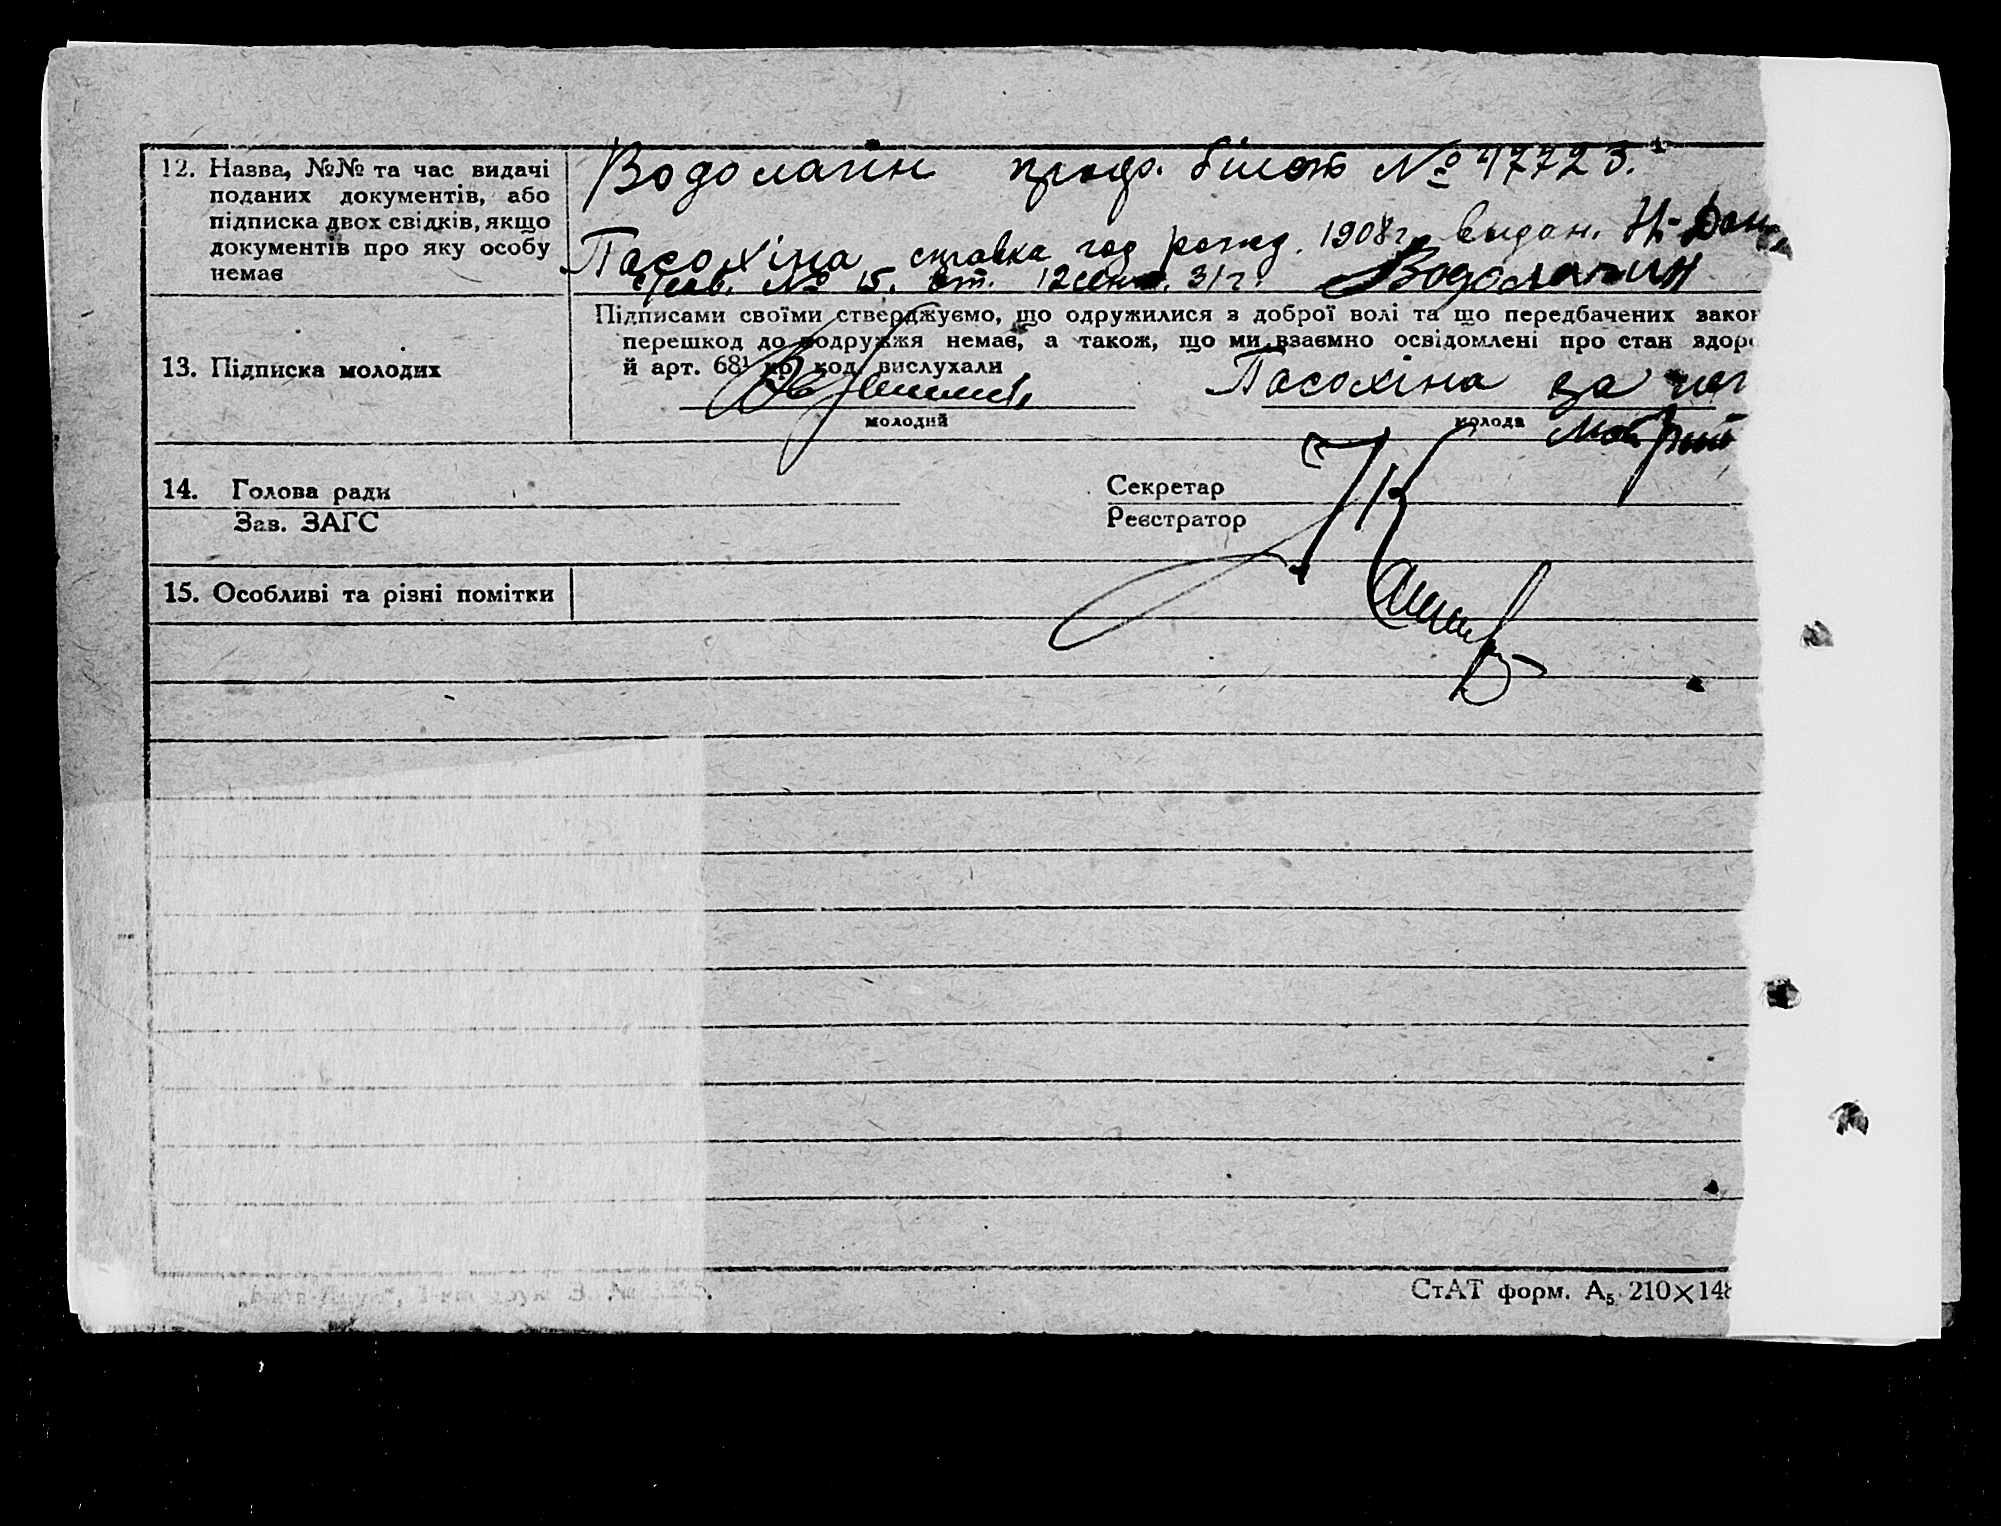 12. Назва, №№ та час видачі
поданих документів, або
підписка двох свідків, якщо
документів про яку особу
немає
Водолагін проф. білет № 47723.
Пасохіна справка год рожд. 1908 г. выдан. Н-Дон
№ 15. от. 12 сент. 31 г. Водолагин
Підписами своїми стверджуємо, що одружилися з доброї волі та що передбачених закон
перешкод до подружжя немає, а також, що ми взаємно освідомлені про стан здоро
й арт. 68¹ кр. код. вислухали
13. Підписка молодих
Пасохіна за
молодий
молода
14. Голова ради
Секретар
Зав. ЗАГС
Реєстратор
15. Особливі та різні помітки
СтАТ форм. А₅ 210×148